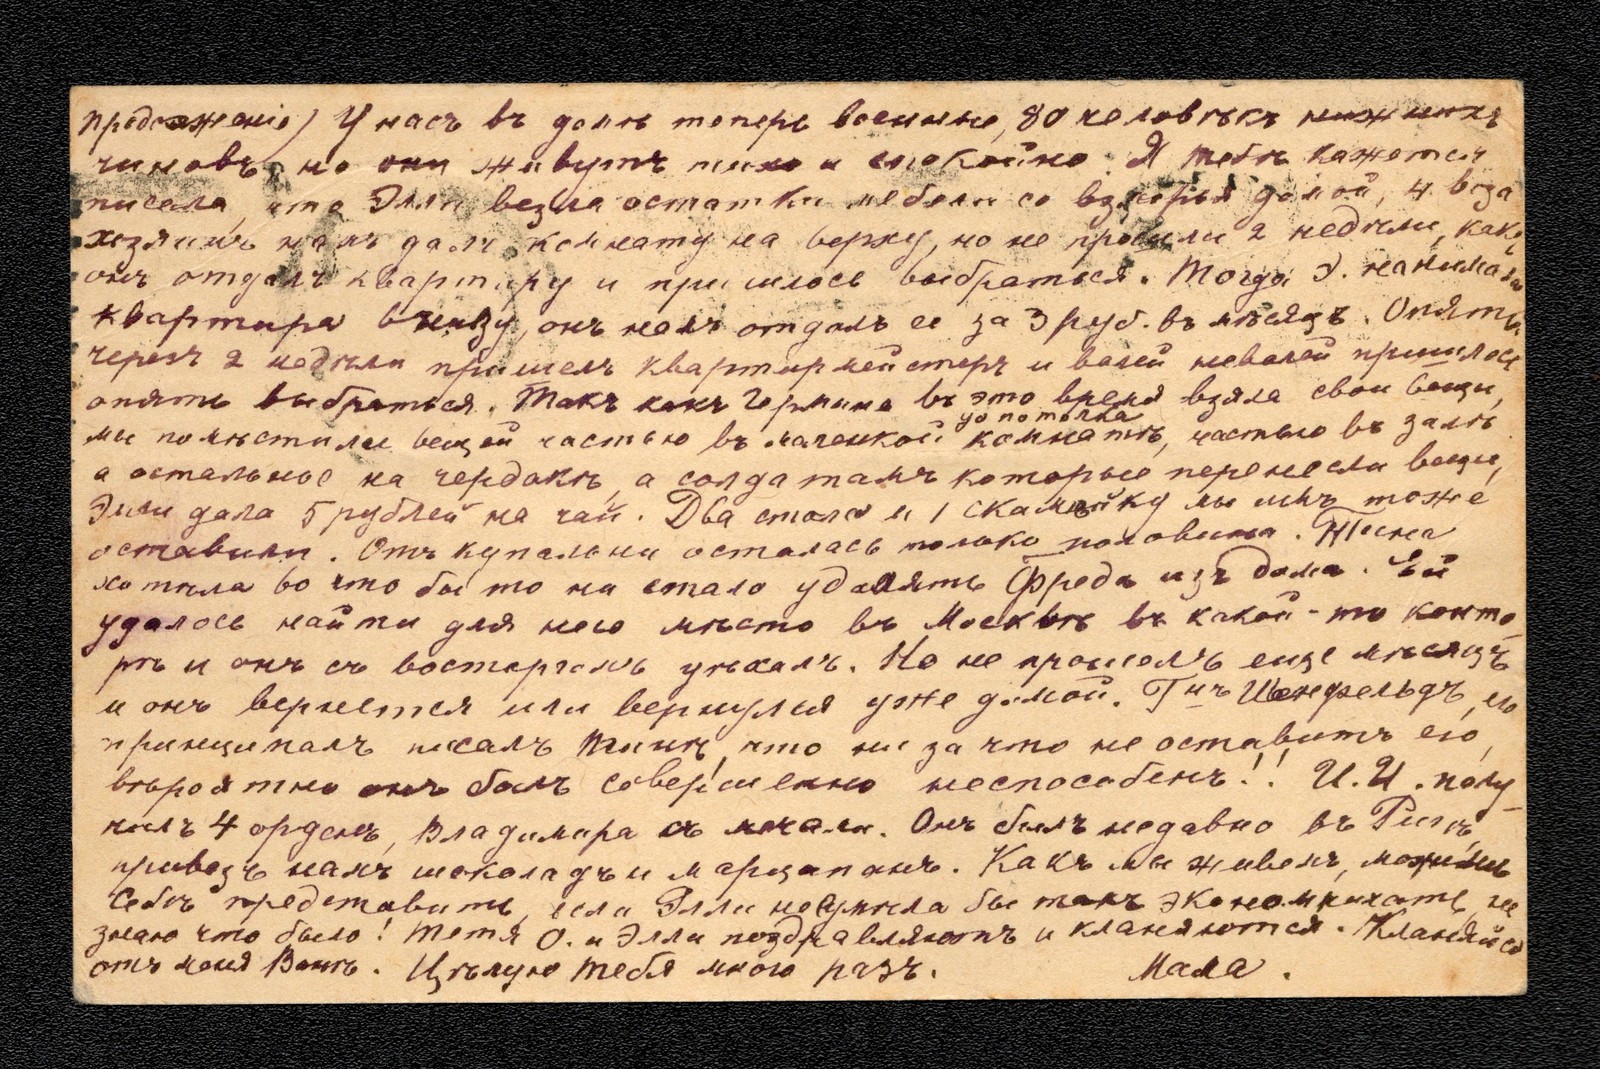 продолженіе) У насъ въ домѣ теперь военные, 80 человѣкъ нижнихъ
чиновъ, но они живутъ тихо и спокойно. Я тебѣ кажется
писала, что Элли везла остатки мебели со взморья домой, 4 воза
хозяинъ намъ далъ комнату на верху, но не прошли 2 недѣли, какъ
онъ отдалъ квартиру и пришлось выбраться. Тогда Э. нанимала
квартира внизу, онъ намъ отдалъ ее за 3 руб. въ мѣсяцъ. Опять
черезъ 2 недѣли пришелъ квартирмейстеръ и волей неволей пришлось
опять выбраться. Такъ какъ Гермина въ это время взяла свои вещи,
мы помѣстили вещей частью въ маленкой комнатѣ, частью въ залѣ
у потолка
а остальное на чердакѣ, а солдатамъ которые перенесли вещи,
Элли дала 5 рублей на чай. Два стола и 1 скамейку мы имъ тоже
оставили. Отъ купальни осталась только половина. Тина
хотѣла во что бы то на стало удалять Фреда изъ дома. Ей
удалось найти для него мѣсто въ Москвѣ въ какой-то конто-
рѣ и онъ съ восторгомъ уѣхалъ. Но не прошелъ еще мѣсяцъ
и онъ вернется или вернулся уже домой. Гнъ Шенфельдъ, его
принципалъ писалъ Тинѣ, что ни за что не оставитъ его,
вѣроятно онъ былъ совершенно неспособенъ!! И.И. полу-
чилъ 4 орденъ, Владимира съ мечами. Онъ былъ недавно въ Ригѣ,
привезъ намъ шоколадъ и марципанъ. Какъ мы живемъ, можешь
себѣ представить, если Элли не умѣла бы такъ экономничать, не
знаю что было! Тетя О. и Элли поздравляютъ и кланяются. Кланяйся
отъ меня Ванѣ. Цѣлую тебя много разъ. Мама.